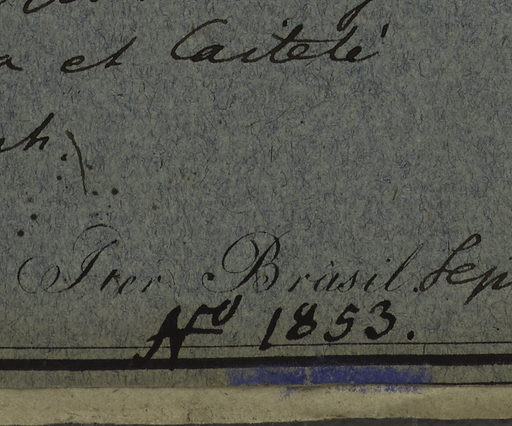 et Caiteté
Iter Brasil. Sep
No 1853.